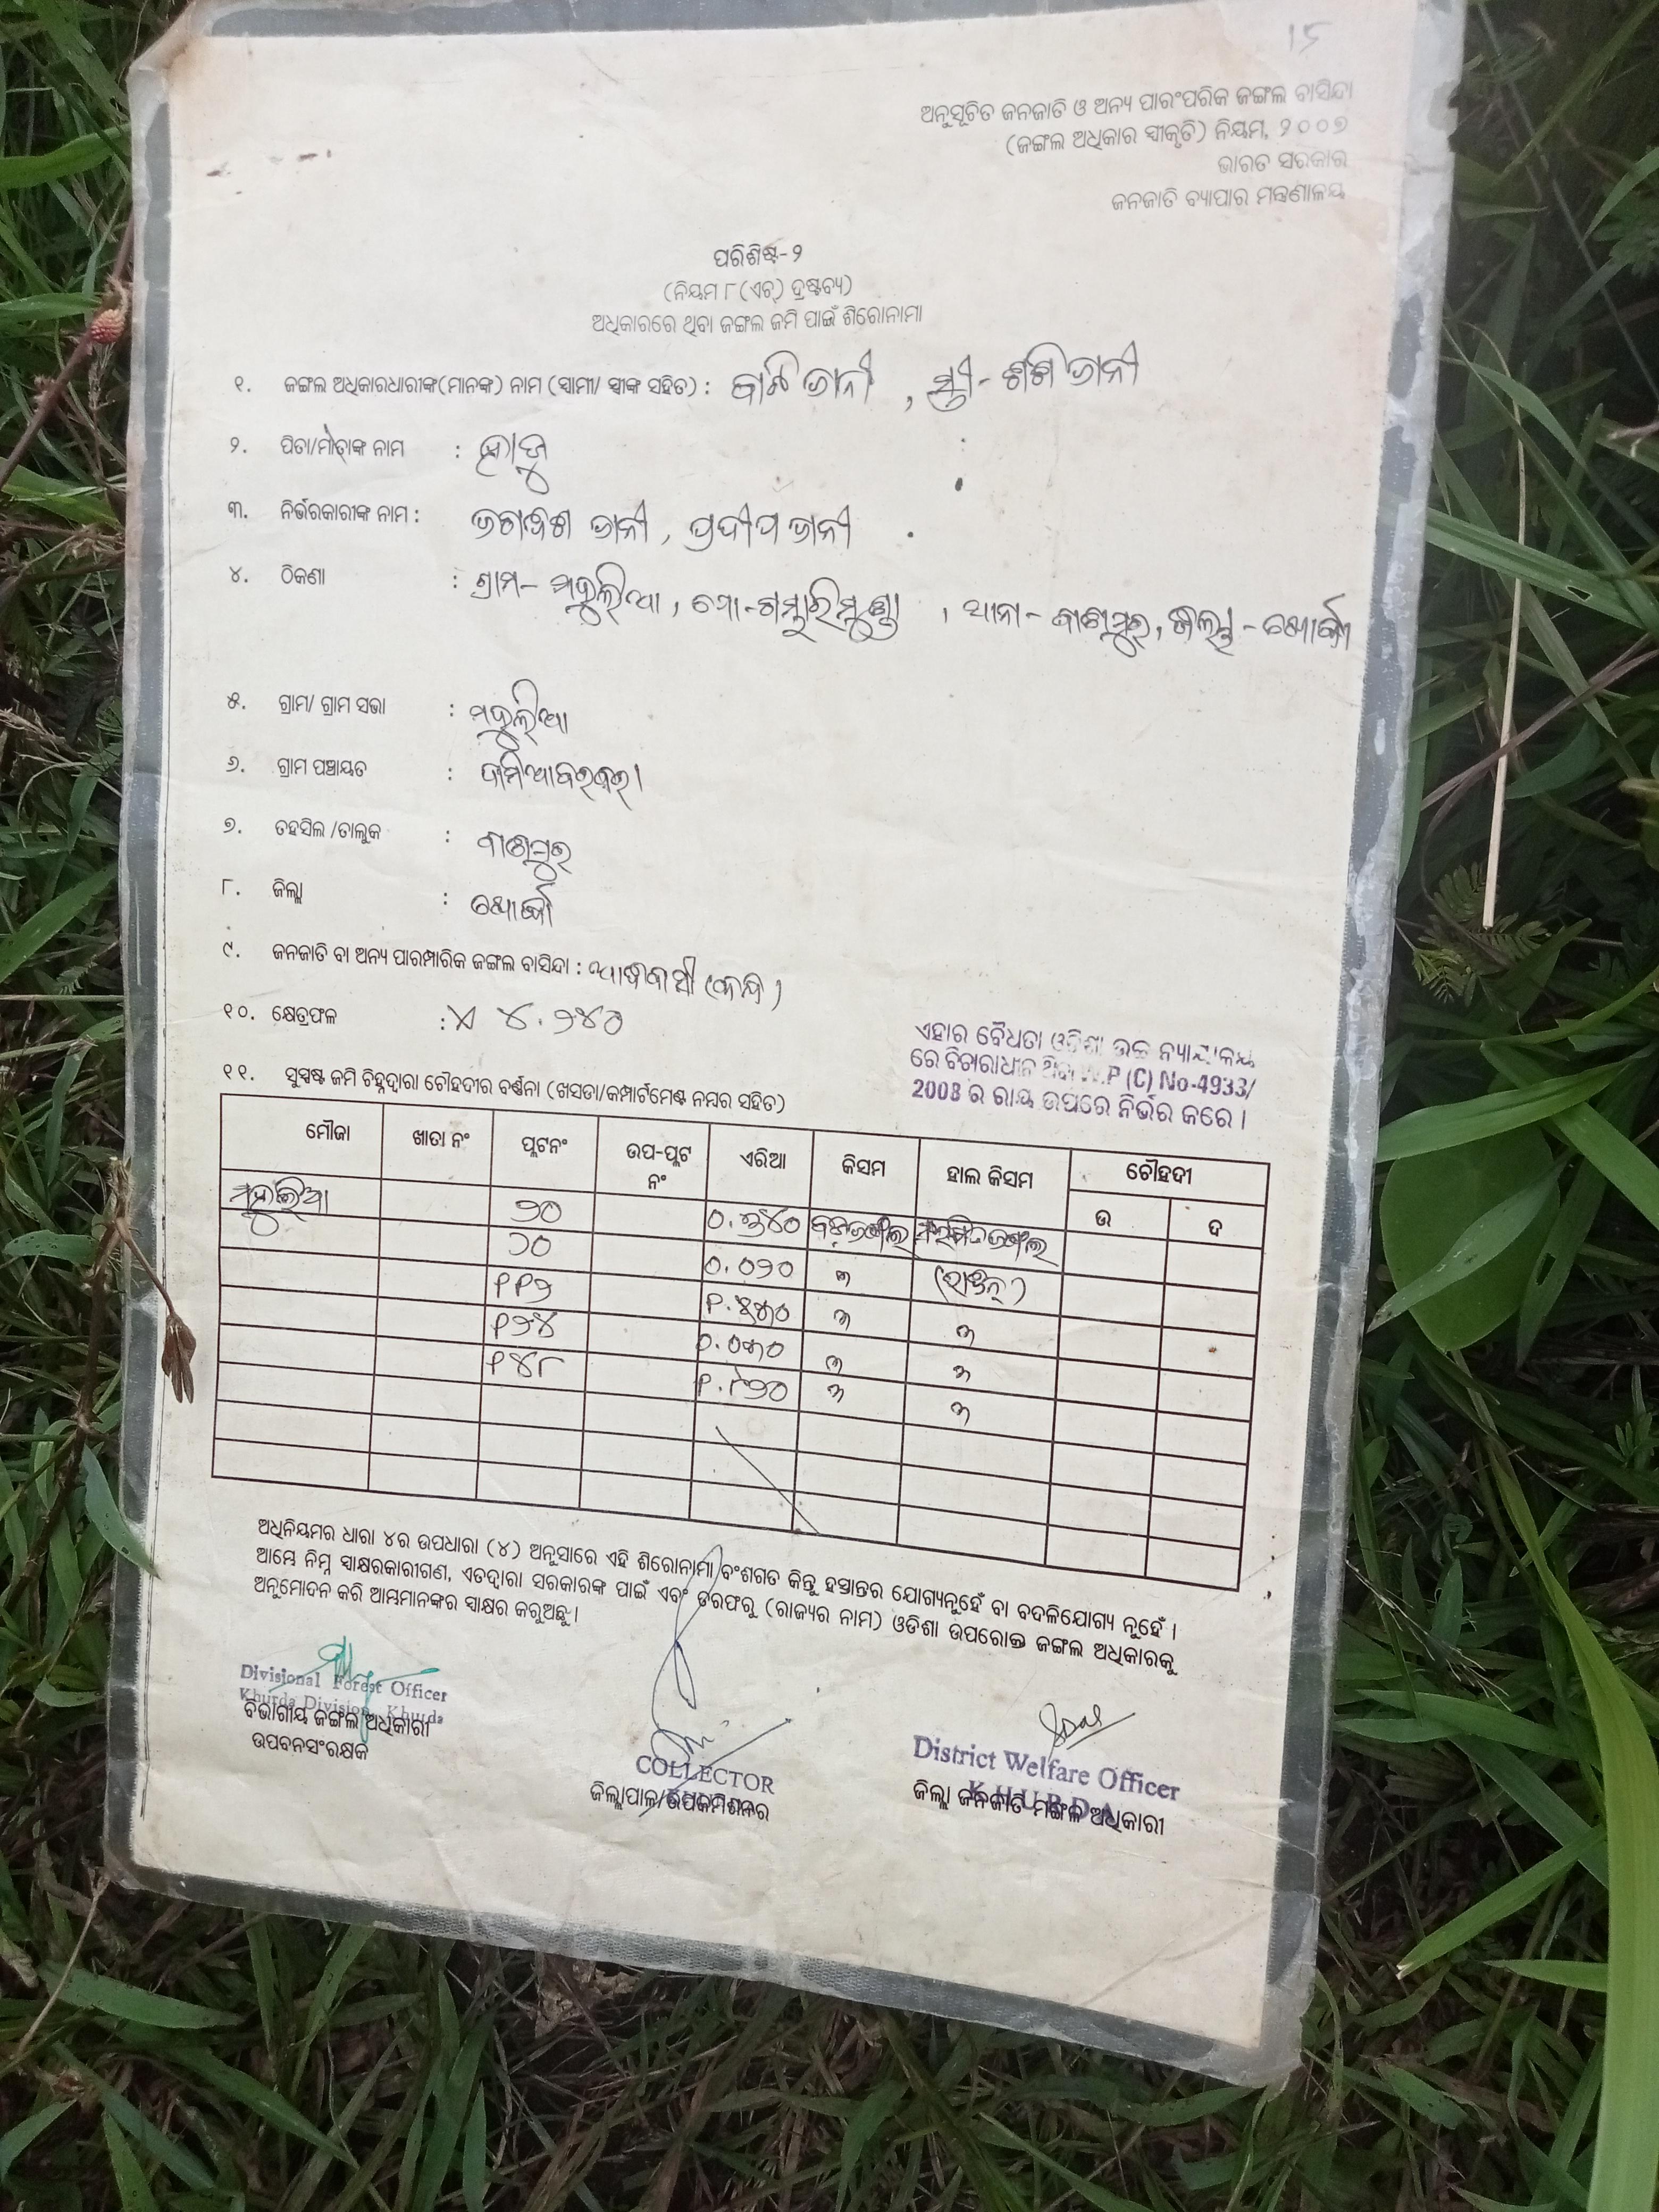 ୨୫
ଅନୁସୂଚିତ ଜନଜାତି ଓ ଅନ୍ୟ ପାରଂପରିକ ଜଙ୍ଗଲ ବାସିନ୍ଦା
(ଜଙ୍ଗଲ ଅଧିକାର ସ୍ୱୀକୃତି) ନିୟମ, ୨୦୦୭
ଭାରତ ସରକାର
ଜନଜାତି ବ୍ୟାପାର ମନ୍ତ୍ରଣାଳୟ
ପରିଶିଷ୍ଟ-୨
(ନିୟମ ୮(ଏଚ୍) ଦ୍ରଷ୍ଟବ୍ୟ)
ଅଧିକାରରେ ଥିବା ଜଙ୍ଗଲ ଜମି ପାଇଁ ଶିରୋନାମା
୧. ଜଙ୍ଗଲ ଅଧିକାରଧାରୀଙ୍କ(ମାନଙ୍କ) ନାମ (ସ୍ୱାମୀ/ ସ୍ତ୍ରୀଙ୍କ ସହିତ) : ଜାନି , ସ୍ତ୍ରୀ- ଜାନି
୨. ପିତା/ମାତାଙ୍କ ନାମ :
୩. ନିର୍ଭରକାରୀଙ୍କ ନାମ : ଜାନି , ପ୍ରଦୀପ ଜାନି
୪. ଠିକଣା : ଗ୍ରାମ- ମହୁଲିଆ , ପୋ-ଗମ୍ଭାରିମୁଣ୍ଡା , ଥାନା - ବାଣପୁର, ଜିଲ୍ଲା - ଖୋର୍ଦ୍ଧା
୫. ଗ୍ରାମ/ ଗ୍ରାମ ସଭା : ମହୁଲିଆ
୬. ଗ୍ରାମ ପଞ୍ଚାୟତ :
୭. ତହସିଲ /ତାଲୁକ : ବାଣପୁର
୮. ଜିଲ୍ଲା : ଖୋର୍ଦ୍ଧା
୯. ଜନଜାତି ବା ଅନ୍ୟ ପାରମ୍ପାରିକ ଜଙ୍ଗଲ ବାସିନ୍ଦା : ଆଦିବାସୀ (କନ୍ଧ)
୧୦. କ୍ଷେତ୍ରଫଳ : ୪.୨୪୦
ଏହାର ବୈଧତା ଓଡିଶା ଉଚ୍ଚ ନ୍ୟାୟାଳୟ
ରେ ବିଚାରାଧୀନ ଥିବା W.P (C) No-4933/
2008 ର ରାୟ ଉପରେ ନିର୍ଭର କରେ ।
୧୧. ସୁସ୍ପଷ୍ଟ ଜମି ଚିହ୍ନଦ୍ୱାରା ଚୌହଦୀର ବର୍ଣ୍ଣନା (ଖସଡା/କମ୍ପାର୍ଟମେଣ୍ଟ ନମ୍ବର ସହିତ)
ମୌଜା ଖାତା ନଂ ପ୍ଲଟନଂ ଉପ-ପ୍ଲଟ ନଂ ଏରିଆ କିସମ ହାଲ କିସମ ଚୌହଦୀ
ଉ ଦ
ମହୁଲିଆ ୨୦ ୦.୩୪୦
୨୦ ୦.୦୨୦ "
୧୧୨ "  "
୧୨୪ ୦.୦୩୦ " "
୧୪୮ ୧.୮୨୦ " "
ଅଧିନିୟମର ଧାରା ୪ର ଉପଧାରା (୪) ଅନୁସାରେ ଏହି ଶିରୋନାମା ବଂଶଗତ କିନ୍ତୁ ହସ୍ତାନ୍ତର ଯୋଗ୍ୟନୁହେଁ ବା ବଦଳିଯୋଗ୍ୟ ନୁହେଁ ।
ଆମ୍ଭେ ନିମ୍ନ ସ୍ୱାକ୍ଷରକାରୀଗଣ, ଏତଦ୍ୱାରା ସରକାରଙ୍କ ପାଇଁ ଏବଂ ତରଫରୁ (ରାଜ୍ୟର ନାମ) ଓଡିଶା ଉପରୋକ୍ତ ଜଙ୍ଗଲ ଅଧିକାରକୁ
ଅନୁମୋଦନ କରି ଆମ୍ଭମାନଙ୍କର ସ୍ୱାକ୍ଷର କରୁଅଛୁ ।
Divisional Forest Officer
Khurda Division, Khurda
ବିଭାଗୀୟ ଜଙ୍ଗଲ ଅଧିକାରୀ
ଉପବନସଂରକ୍ଷକ
COLLECTOR
ଜିଲ୍ଲାପାଳ/ଉପକମିଶନର
District Welfare Officer
KHURDA
ଜିଲ୍ଲା ଜନଜାତି ମଙ୍ଗଳ ଅଧିକାରୀ